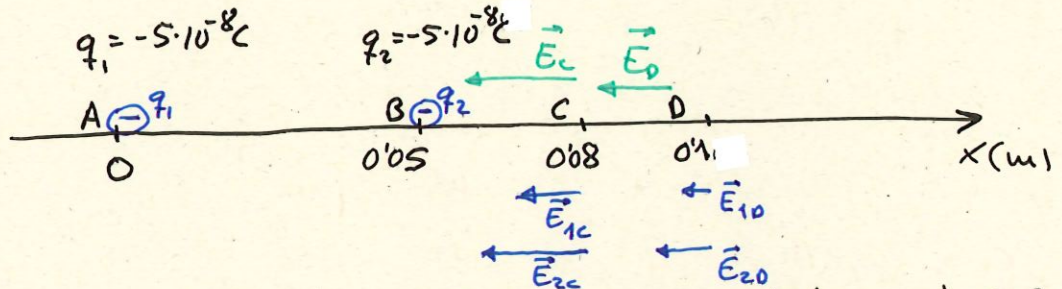 q₁ = -5·10⁻⁸C q₂ = -5·10⁻⁸C
E⃗c E⃗D
A - q₁ B - q₂ C D
0 0'05 0'08 0'1 X(m)
E⃗1C E⃗1D
E⃗2C E⃗2D